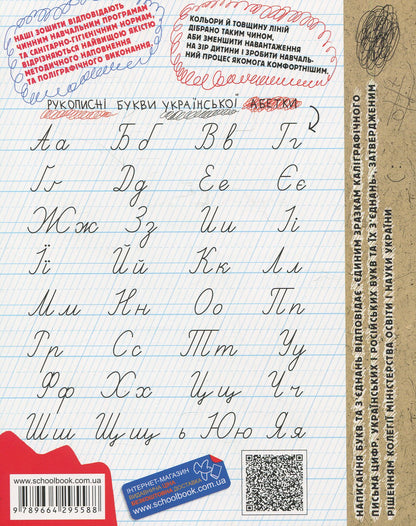 НАШІ ЗОШИТИ ВІДПОВІДАЮТЬ
ЧИННИМ НАВЧАЛЬНИМ ПРОГРАМАМ
ТА САНІТАРНО-ГІГІЄНІЧНИМ НОРМАМ,
ВІДРІЗНЯЮТЬСЯ НАЙВИЩОЮ ЯКІСТЮ
МЕТОДИЧНОГО НАПОВНЕННЯ
ТА ПОЛІГРАФІЧНОГО ВИКОНАННЯ.
КОЛЬОРИ Й ТОВЩИНУ ЛІНІЙ
ДІБРАНО ТАКИМ ЧИНОМ,
АБИ ЗМЕНШИТИ НАВАНТАЖЕННЯ
НА ЗІР ДИТИНИ І ЗРОБИТИ НАВЧАЛЬ-
НИЙ ПРОЦЕС ЯКОМОГА КОМФОРТНІШИМ.
РУКОПИСНІ БУКВИ УКРАЇНСЬКОЇ АБЕТКИ
Аа Бб Вв Гг
Ґґ Дд Ее Єє
Жж Зз Ии Іі
Її Йй Кк Лл
Мм Нн Оо Пп
Рр Сс Тт Уу
Фф Хх Цц Чч
Шш Щщ ь Юю Яя
НАПИСАННЯ БУКВ ТА З'ЄДНАНЬ ВІДПОВІДАЄ «ЄДИНИМ ЗРАЗКАМ КАЛІГРАФІЧНОГО
ПИСЬМА ЦИФР, УКРАЇНСЬКИХ І РОСІЙСЬКИХ БУКВ ТА ЇХ З'ЄДНАНЬ», ЗАТВЕРДЖЕНИМ
РІШЕННЯМ КОЛЕГІЇ МІНІСТЕРСТВА ОСВІТИ І НАУКИ УКРАЇНИ
www.schoolbook.com.ua
9 789664 295588
ІНТЕРНЕТ-МАГАЗИН
ВИДАВНИЧА ЦІНА
БЕЗКОШТОВНА ДОСТАВКА
www.schoolbook.com.ua